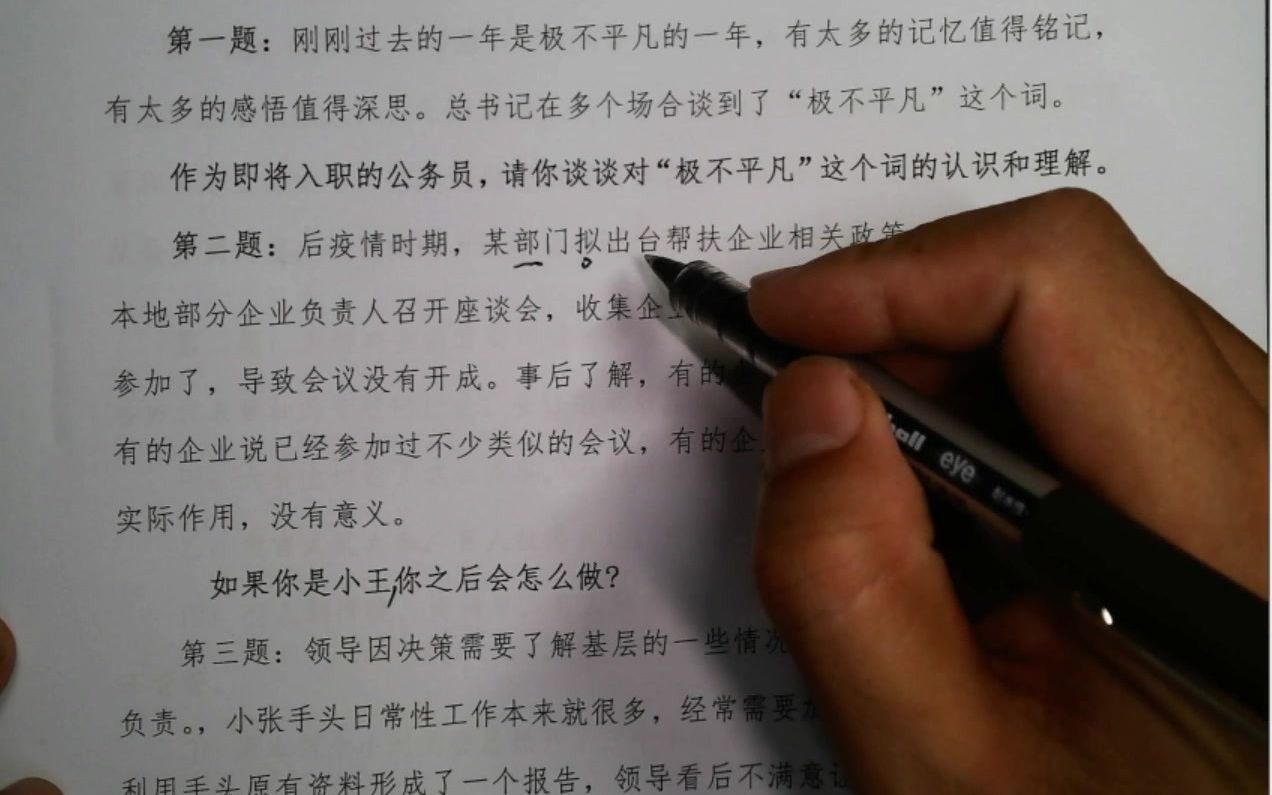 第一题：刚刚过去的一年是极不平凡的一年，有太多的记忆值得铭记，
有太多的感悟值得深思。总书记在多个场合谈到了“极不平凡”这个词。
作为即将入职的公务员，请你谈谈对“极不平凡”这个词的认识和理解。
第二题：后疫情时期，某部门拟出台帮扶企业相关政策
本地部分企业负责人召开座谈会，收集企业
参加了，导致会议没有开成。事后了解，有的
有的企业说已经参加过不少类似的会议，有的企
实际作用，没有意义。
如果你是小王,你之后会怎么做？
第三题：领导因决策需要了解基层的一些情况
负责。，小张手头日常性工作本来就很多，经常需要加
利用手头原有资料形成了一个报告，领导看后不满意
ball eye